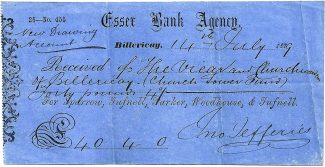 25—No. 455
Essex Bank Agency,
New Drawing
Account
Billericay, 14th July 1887
Received of The Vicar and Churchwardens
of Billericay (Church Tower Fund)
Forty pounds 4/
For Sparrow, Tufnell, Parker, Woodhouse, & Tufnell.
£40.4.0
Jno Jefferies